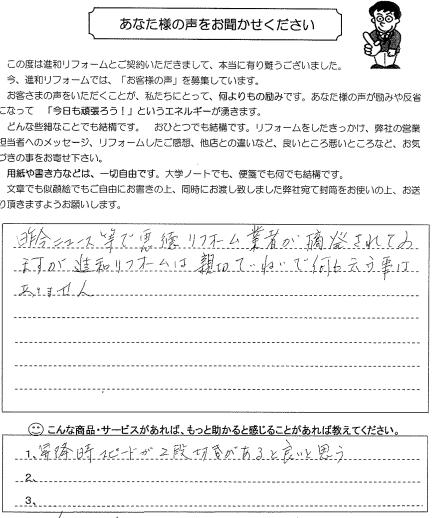 あなた様の声をお聞かせください
この度は進和リフォームとご契約いただきまして、本当に有り難うございました。
今、進和リフォームでは、「お客様の声」を募集しています。
お客さまの声をいただくことが、私たちにとって、何よりもの励みです。あなた様の声が励みや反省
になって　「今日も頑張ろう！」というエネルギーが湧きます。
どんな些細なことでも結構です。　おひとつでも結構です。リフォームをしたきっかけ、弊社の営業
担当者へのメッセージ、リフォームしたご感想、他店との違いなど、良いところ悪いところなど、お気
づきの事をお寄せ下さい。
用紙や書き方などは、一切自由です。大学ノートでも、便箋でも何でも結構です。
文章でも似顔絵でもご自由にお書きの上、同時にお渡し致しました弊社宛て封筒をお使いの上、お送
り頂きますようお願いします。
昨今ニュース等で悪徳リフォーム業者が摘発されてゐ
ますが進和リフォームは親切ていねいで何も云う事は
ありません
こんな商品・サービスがあれば、もっと助かると感じることがあれば教えてください。
1、昇降時スピードが2段切替があると良いと思う
2、
3、